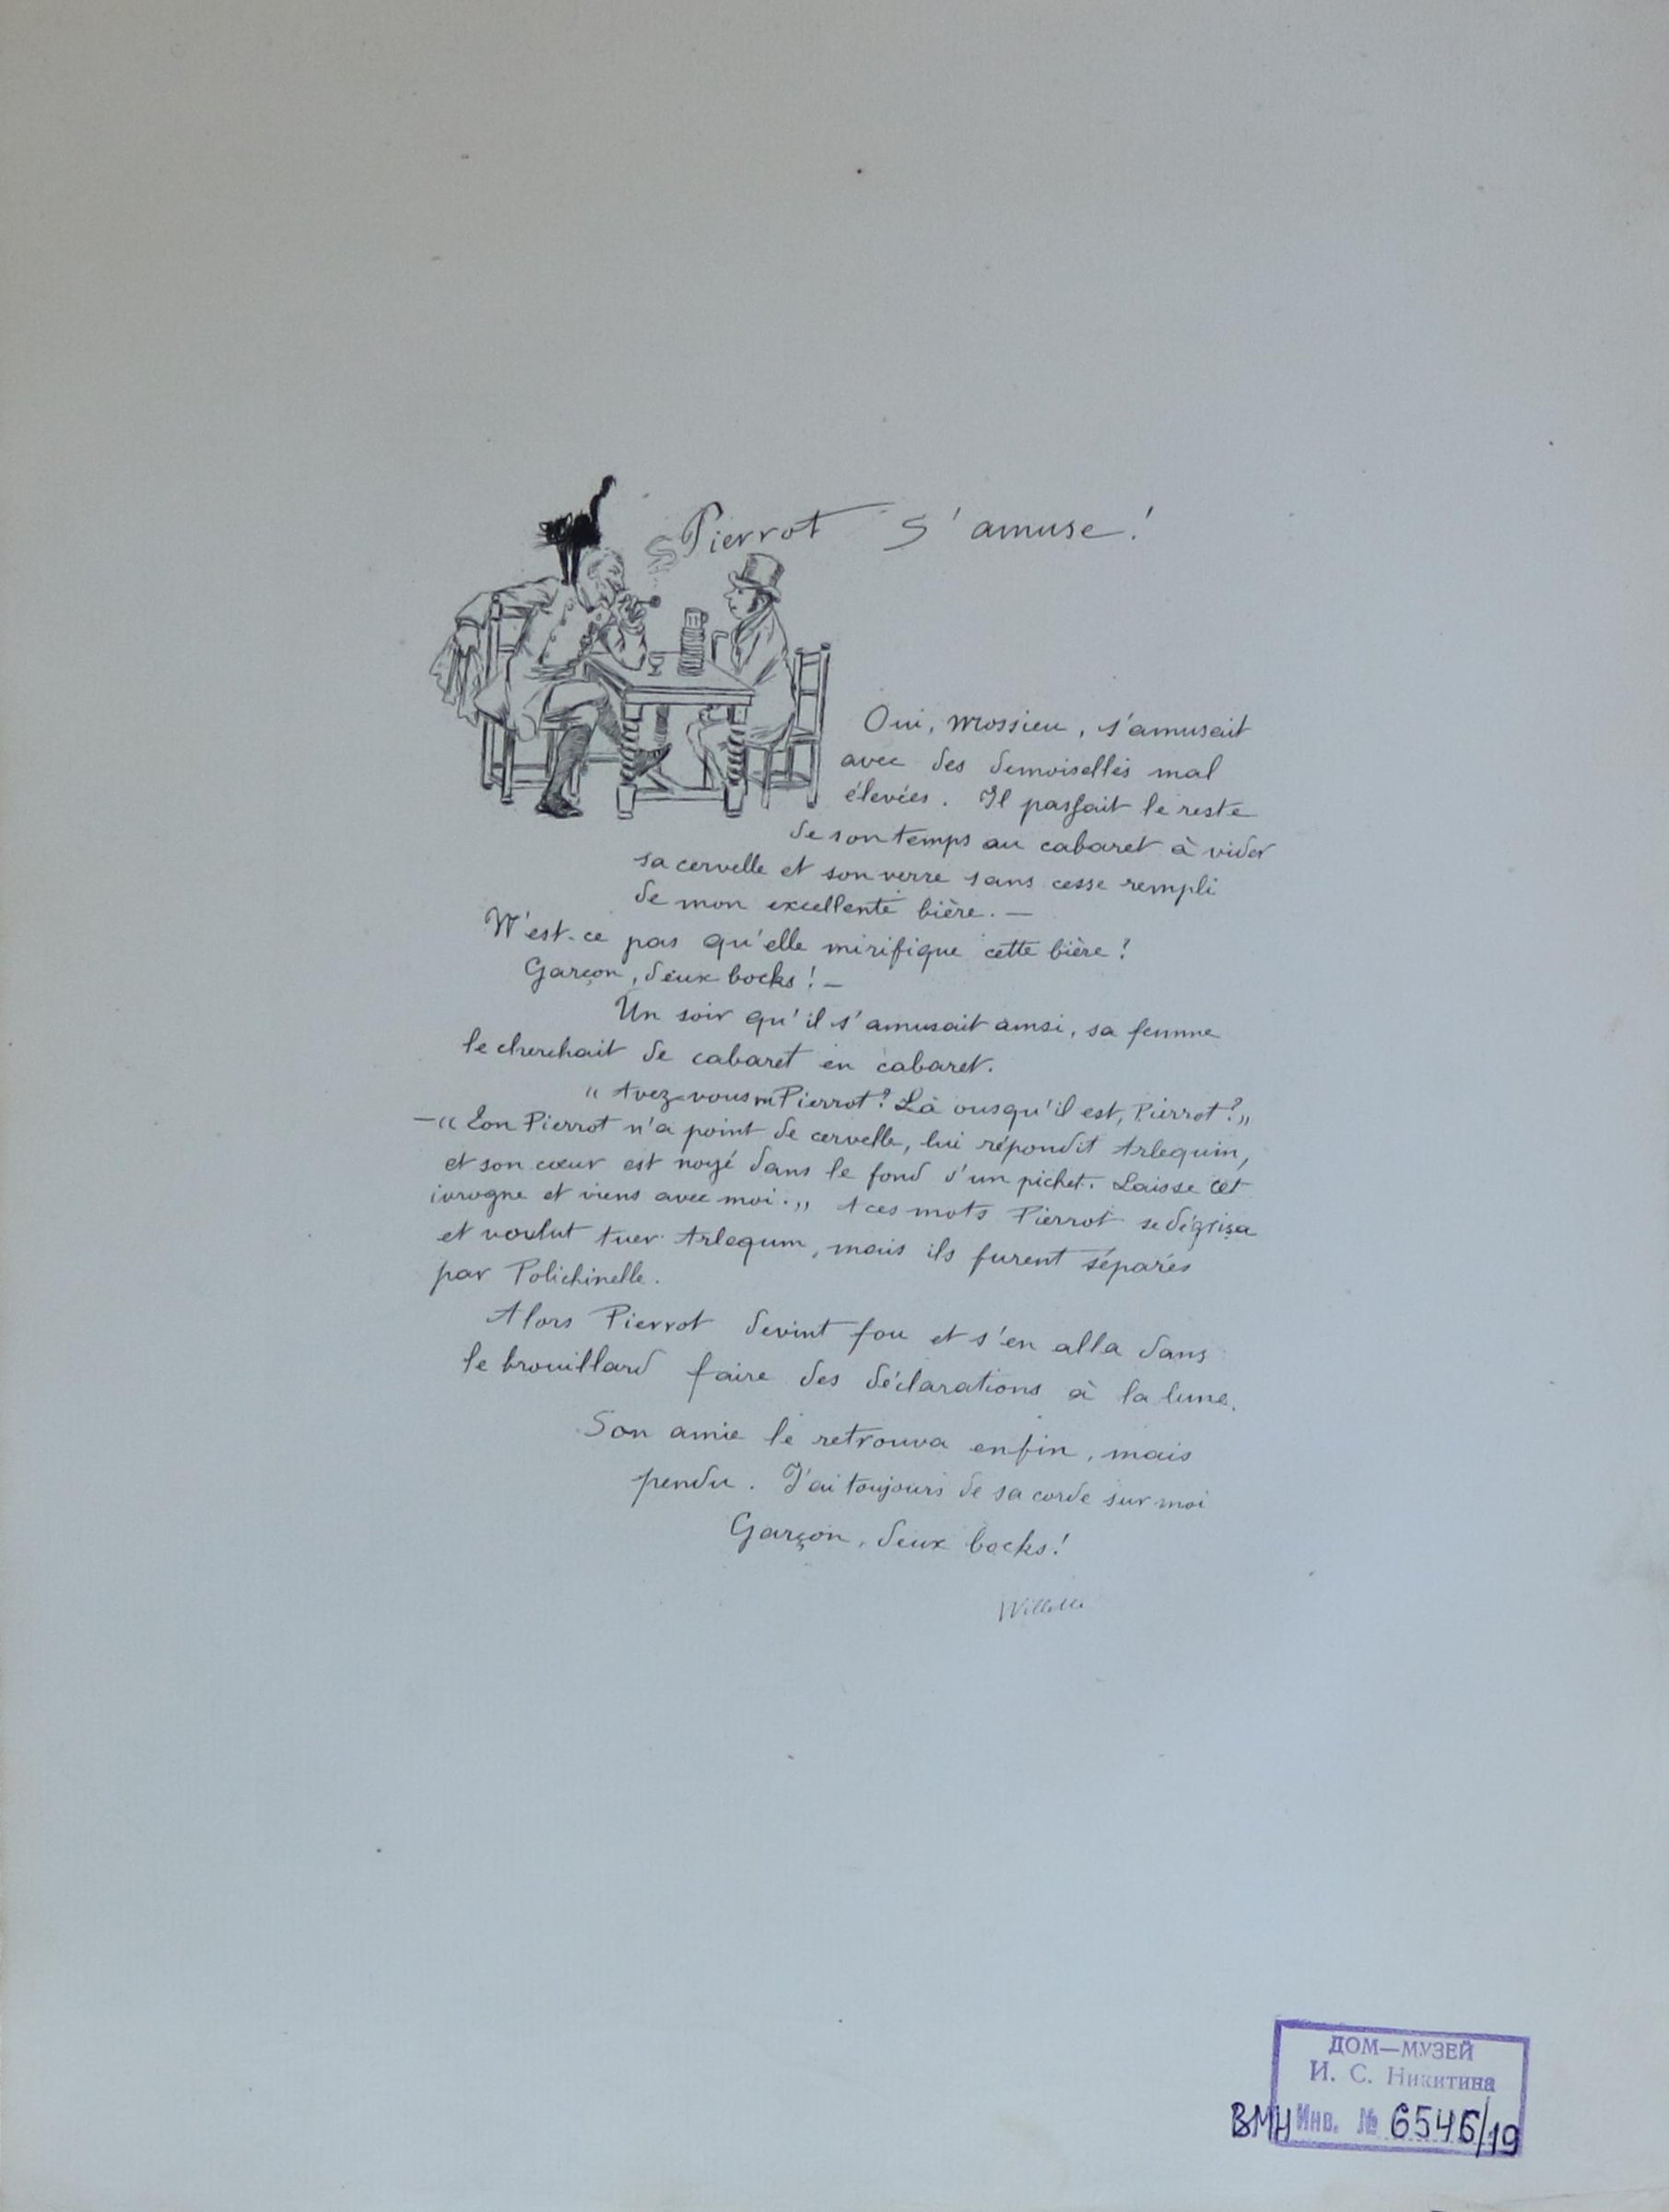 Pierrot s'amuse!
Oui, mossieu, s'amusait
avec des demoiselles mal
élevées. Il passait le reste
de son temps au cabaret à vider
sa cervelle et son verre sans cesse rempli
de mon excellente bière. —
N'est-ce pas qu'elle mirifique cette bière!
Garçon, deux bocks! —
Un soir qu'il s'amusait ainsi, sa femme
le cherchait de cabaret en cabaret.
"Avez-vous vu Pierrot? Là ousqu'il est, Pierrot?"
— "Ton Pierrot n'a point de cervelle, lui répondit Arlequin,
et son cœur est noyé dans le fond d'un pichet. Laisse cet
ivrogne et viens avec moi." A ces mots Pierrot se dégrisa
et voulut tuer Arlequin, mais ils furent séparés
par Polichinelle.
Alors Pierrot devint fou et s'en alla dans
le brouillard faire des déclarations à la lune.
Son amie le retrouva enfin, mais
pendu. J'ai toujours de sa corde sur moi
Garçon, deux bocks!
Willette
ДОМ—МУЗЕЙ
И. С. Никитина
ВМН Инв. № 6546/19